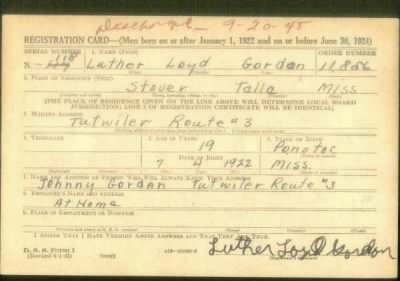 Discharged 9-20-45
REGISTRATION CARD—(Men born on or after January 1, 1922 and on or before June 30, 1924)
SERIAL NUMBER 1. NAME (Print) ORDER NUMBER
N- 118 Luther Loyd Gordon 11,856
(First) (Middle) (Last)
2. PLACE OF RESIDENCE (Print)
Stover Talla Miss
[THE PLACE OF RESIDENCE GIVEN ON THE LINE ABOVE WILL DETERMINE LOCAL BOARD
JURISDICTION; LINE 2 OF REGISTRATION CERTIFICATE WILL BE IDENTICAL]
3. MAILING ADDRESS
Tutwiler Route #3
4. TELEPHONE 5. AGE IN YEARS 6. PLACE OF BIRTH
19 Pontotoc
DATE OF BIRTH
7 4 1922 Miss.
7. NAME AND ADDRESS OF PERSON WHO WILL ALWAYS KNOW YOUR ADDRESS
Johnny Gordan Tutwiler Route #3
8. EMPLOYER'S NAME AND ADDRESS
At Home
9. PLACE OF EMPLOYMENT OR BUSINESS
I AFFIRM THAT I HAVE VERIFIED ABOVE ANSWERS AND THAT THEY ARE TRUE.
D. S. S. Form 1
(Revised 6-1-42) (over)
Luther Loyd Gordon